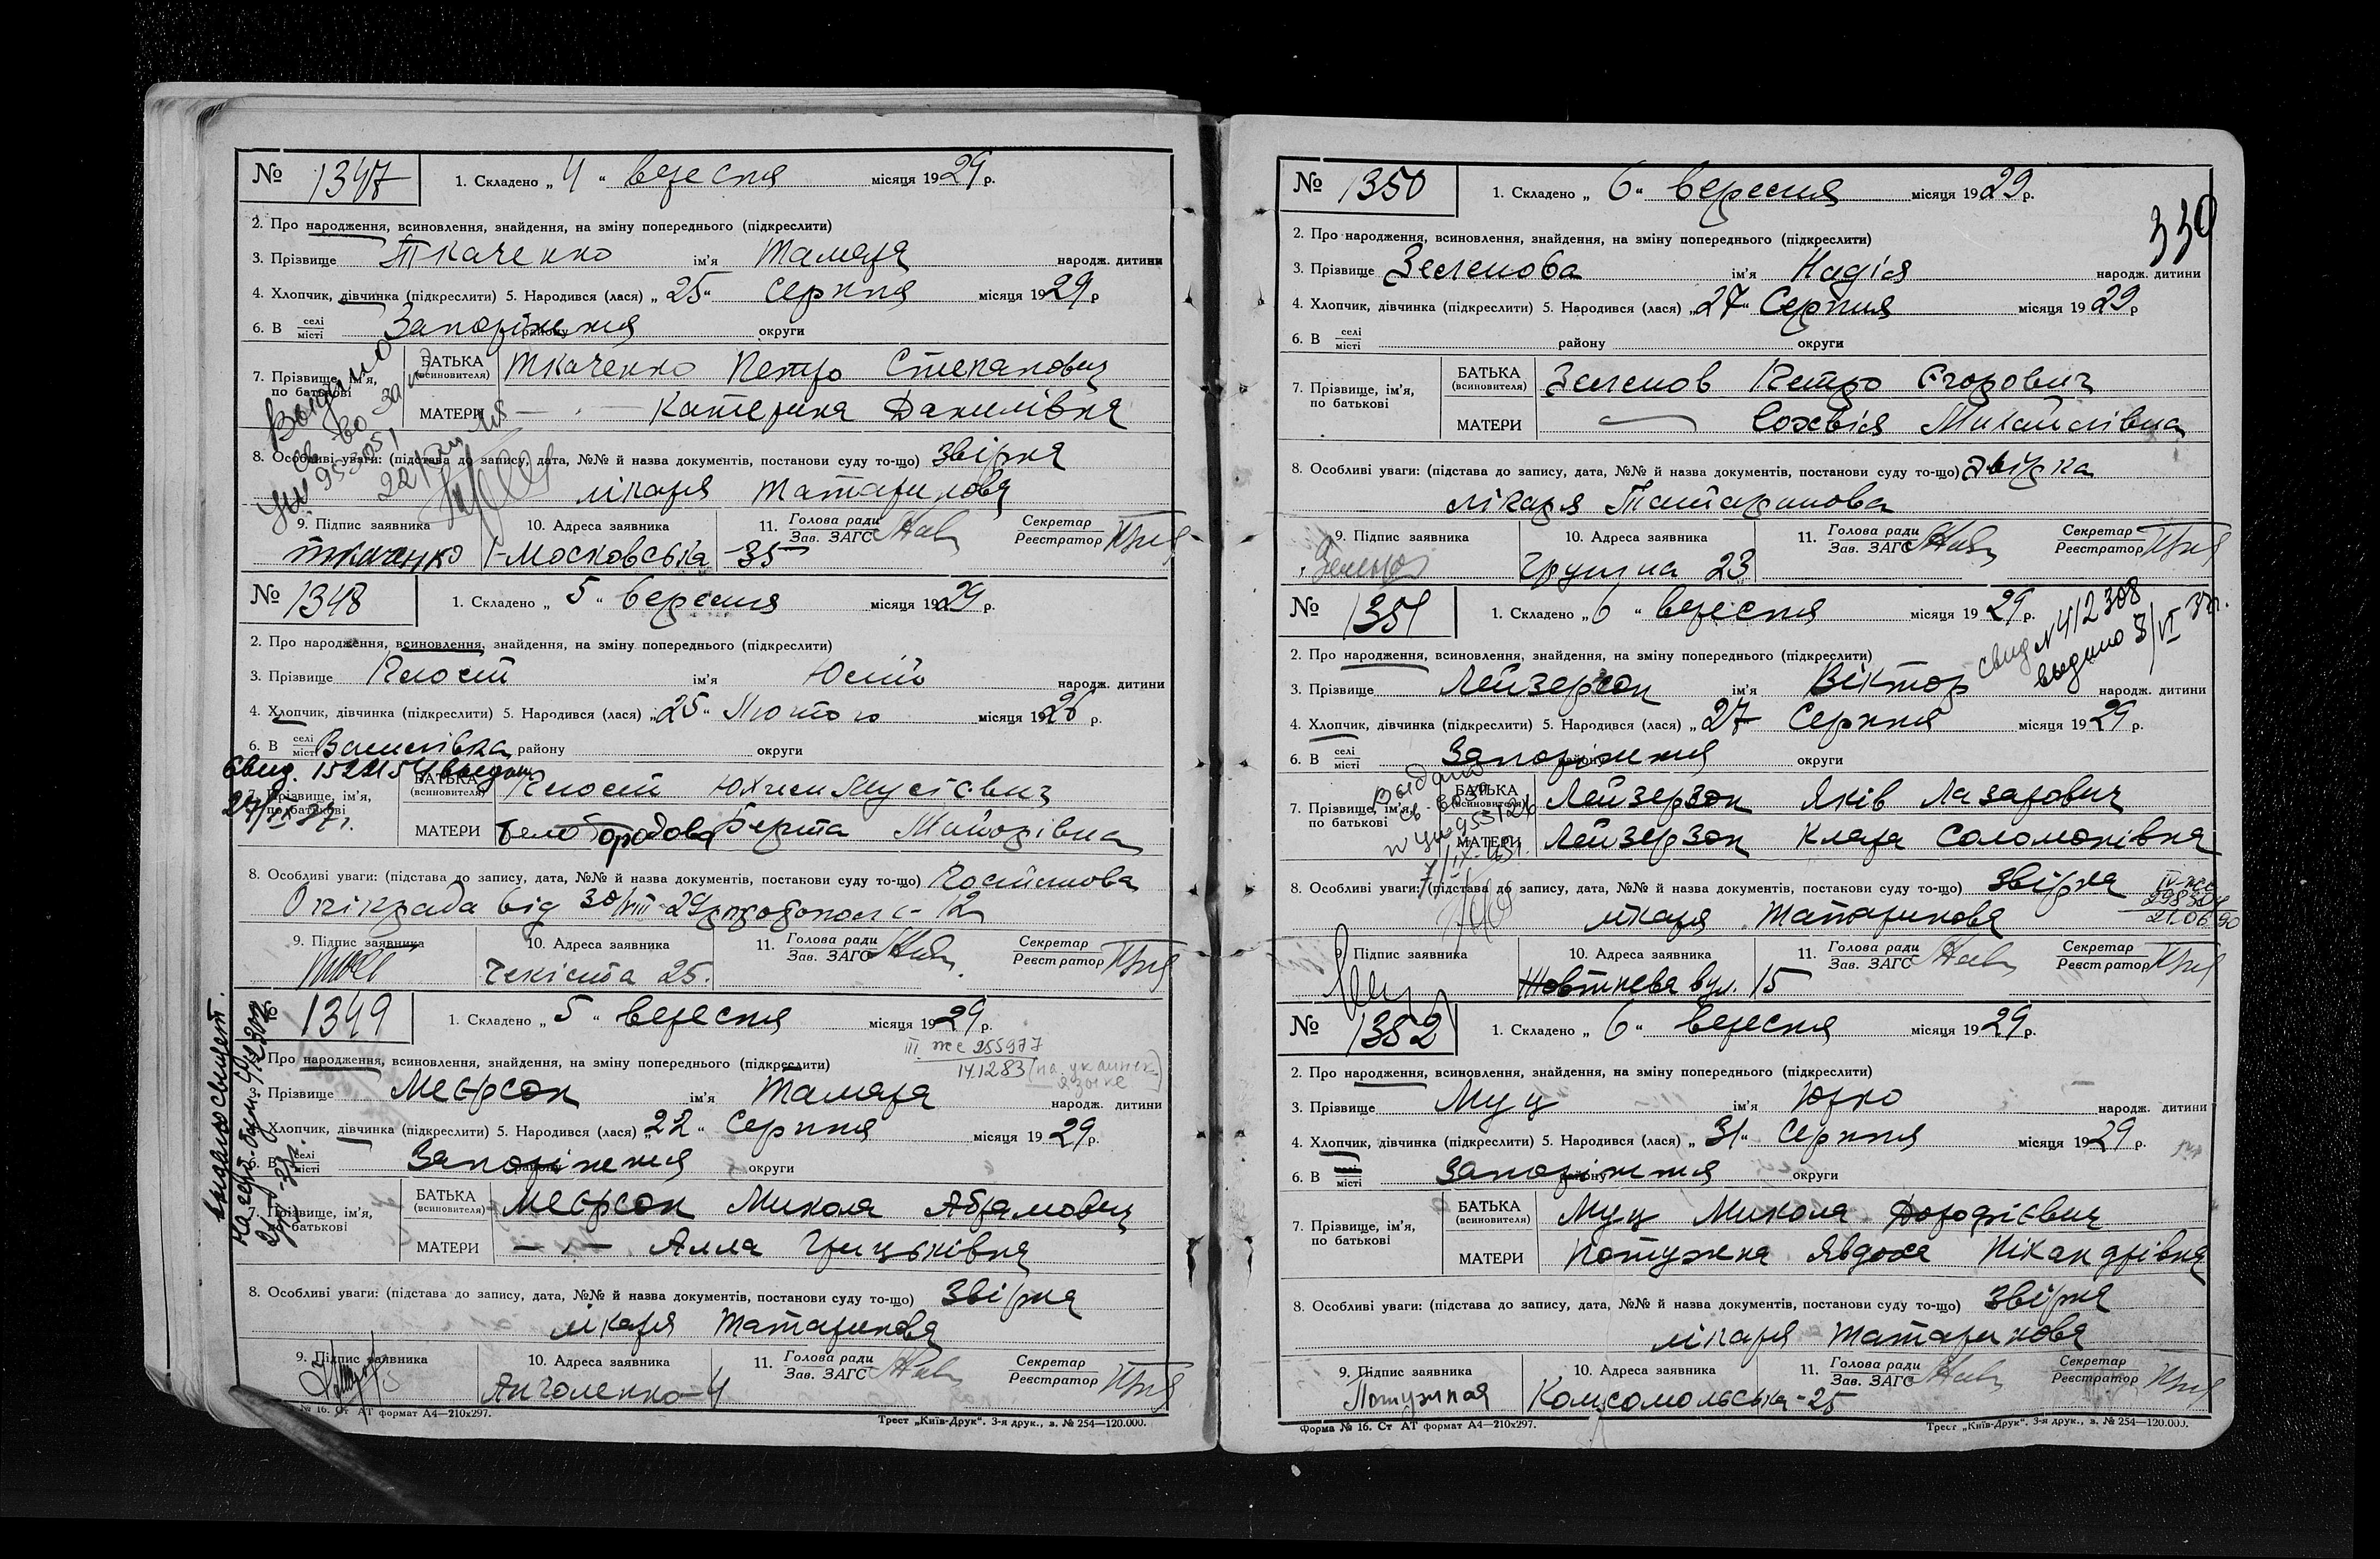 № 1347
1. Складено „ 4 “ вересня місяця 1929 р.
2. Про народження, всиновлення, знайдення, на зміну попереднього (підкреслити)
3. Прізвище Ткаченко ім'я Тамара народж. дитини
4. Хлопчик, дівчинка (підкреслити) 5. Народився (лася) „ 25 “ серпня місяця 1929 р
6. В селі місті Запоріжжя району округи
7. Прізвище, ім'я, по батькові
БАТЬКА (всиновителя) Ткаченко Петро Степанович
МАТЕРИ — " — Катерина Данилівна
8. Особливі уваги: (підстава до запису, дата, №№ й назва документів, постанови суду то-що) Звірка
лікаря Татаринова
9. Підпис заявника 10. Адреса заявника 11. Голова ради Зав. ЗАГС Секретар Реєстратор
Ткаченко І-Московська 35
№ 1348
1. Складено „ 5 “ вересня місяця 1929 р.
2. Про народження, всиновлення, знайдення, на зміну попереднього (підкреслити)
3. Прізвище ім'я народж. дитини
4. Хлопчик, дівчинка (підкреслити) 5. Народився (лася) „ 25 “ Лютого місяця 1926 р.
6. В селі місті Василівка району округи
Свид. выдан
7. Прізвище, ім'я, по батькові
БАТЬКА (всиновителя) Юхим Мусієвич
МАТЕРИ Белобородова Берта
8. Особливі уваги: (підстава до запису, дата, №№ й назва документів, постакови суду то-що) Постанова
Опікрада від 30/VIII-29р протокол с- 12
9. Підпис заявника 10. Адреса заявника 11. Голова ради Зав. ЗАГС Секретар Реєстратор
Чекіста 25.
№ 1349
1. Складено „ 5 “ вересня місяця 1929 р.
III же 255977
2. Про народження, всиновлення, знайдення, на зміну попереднього (підкреслити)
14.12.83 (на украинск. языке)
3. Прізвище Меєрсон ім'я Тамара народж. дитини
4. Хлопчик, дівчинка (підкреслити) 5. Народився (лася) „ 22 “ Серпня місяця 1929 р.
6. В селі місті Запоріжжя району округи
7. Прізвище, ім'я, по батькові
БАТЬКА (всиновителя) Меєрсон Микола Абрамович
МАТЕРИ — " — Алла Грицьківна
8. Особливі уваги: (підстава до запису, дата, №№ й назва документів, постанови суду то-що) Звірка
лікаря Татаринова
9. Підпис заявника 10. Адреса заявника 11. Голова ради Зав. ЗАГС Секретар Реєстратор
Анголенко-4
№ 16. Ст АТ формат А4—210х297. Трест „Київ-Друк“. 3-я друк., з. № 254—120.000.
330
№ 1350
1. Складено „ 6 “ вересня місяця 1929 р.
2. Про народження, всиновлення, знайдення, на зміну попереднього (підкреслити)
3. Прізвище Зеленова ім'я Надія народж. дитини
4. Хлопчик, дівчинка (підкреслити) 5. Народився (лася) „ 27 “ Серпня місяця 1929 р
6. В селі місті району округи
7. Прізвище, ім'я, по батькові
БАТЬКА (всиновителя) Зеленов Петро Єгорович
МАТЕРИ — Софвія Михайлівна
8. Особливі уваги: (підстава до запису, дата, №№ й назва документів, постанови суду то-що) Звірка
лікаря Татаринова
9. Підпис заявника 10. Адреса заявника 11. Голова ради Зав. ЗАГС Секретар Реєстратор
23
№ 1351
1. Складено „ 6 “ вересня місяця 1929 р.
свид N 412308
выдано 3/VI 37г.
2. Про народження, всиновлення, знайдення, на зміну попереднього (підкреслити)
3. Прізвище Лейзерзон ім'я Віктор народж. дитини
4. Хлопчик, дівчинка (підкреслити) 5. Народився (лася) „ 27 Серпня місяця 1929 р.
6. В селі місті Запоріжжя району округи
7. Прізвище, ім'я, по батькові
БАТЬКА (всиновителя) Лейзерзон Яків Лазарович
МАТЕРИ Лейзерзон Клара Соломонівна
8. Особливі уваги: (підстава до запису, дата, №№ й назва документів, постакови суду то-що) Звірка
лікаря Татаринова
21.06.90
9. Підпис заявника 10. Адреса заявника 11. Голова ради Зав. ЗАГС Секретар Реєстратор
Жовтнева вул. 15
№ 1352
1. Складено „ 6 “ вересня місяця 1929 р.
2. Про народження, всиновлення, знайдення, на зміну попереднього (підкреслити)
3. Прізвище Муц ім'я Юрко народж. дитини
4. Хлопчик, дівчинка (підкреслити) 5. Народився (лася) „ 31 “ Серпня місяця 1929 р.
6. В селі місті Запоріжжя району округи
7. Прізвище, ім'я, по батькові
БАТЬКА (всиновителя) Муц Микола Дорофієвич
МАТЕРИ Потужна Явдоха Нікандрівна
8. Особливі уваги: (підстава до запису, дата, №№ й назва документів, постанови суду то-що) Звірка
лікаря Татаринова
9. Підпис заявника 10. Адреса заявника 11. Голова ради Зав. ЗАГС Секретар Реєстратор
Потужная Комсомольська-25
Форма № 16. Ст АТ формат А4—210х297. Трест „Київ-Друк“. 3-я друк., з. № 254—120.000.